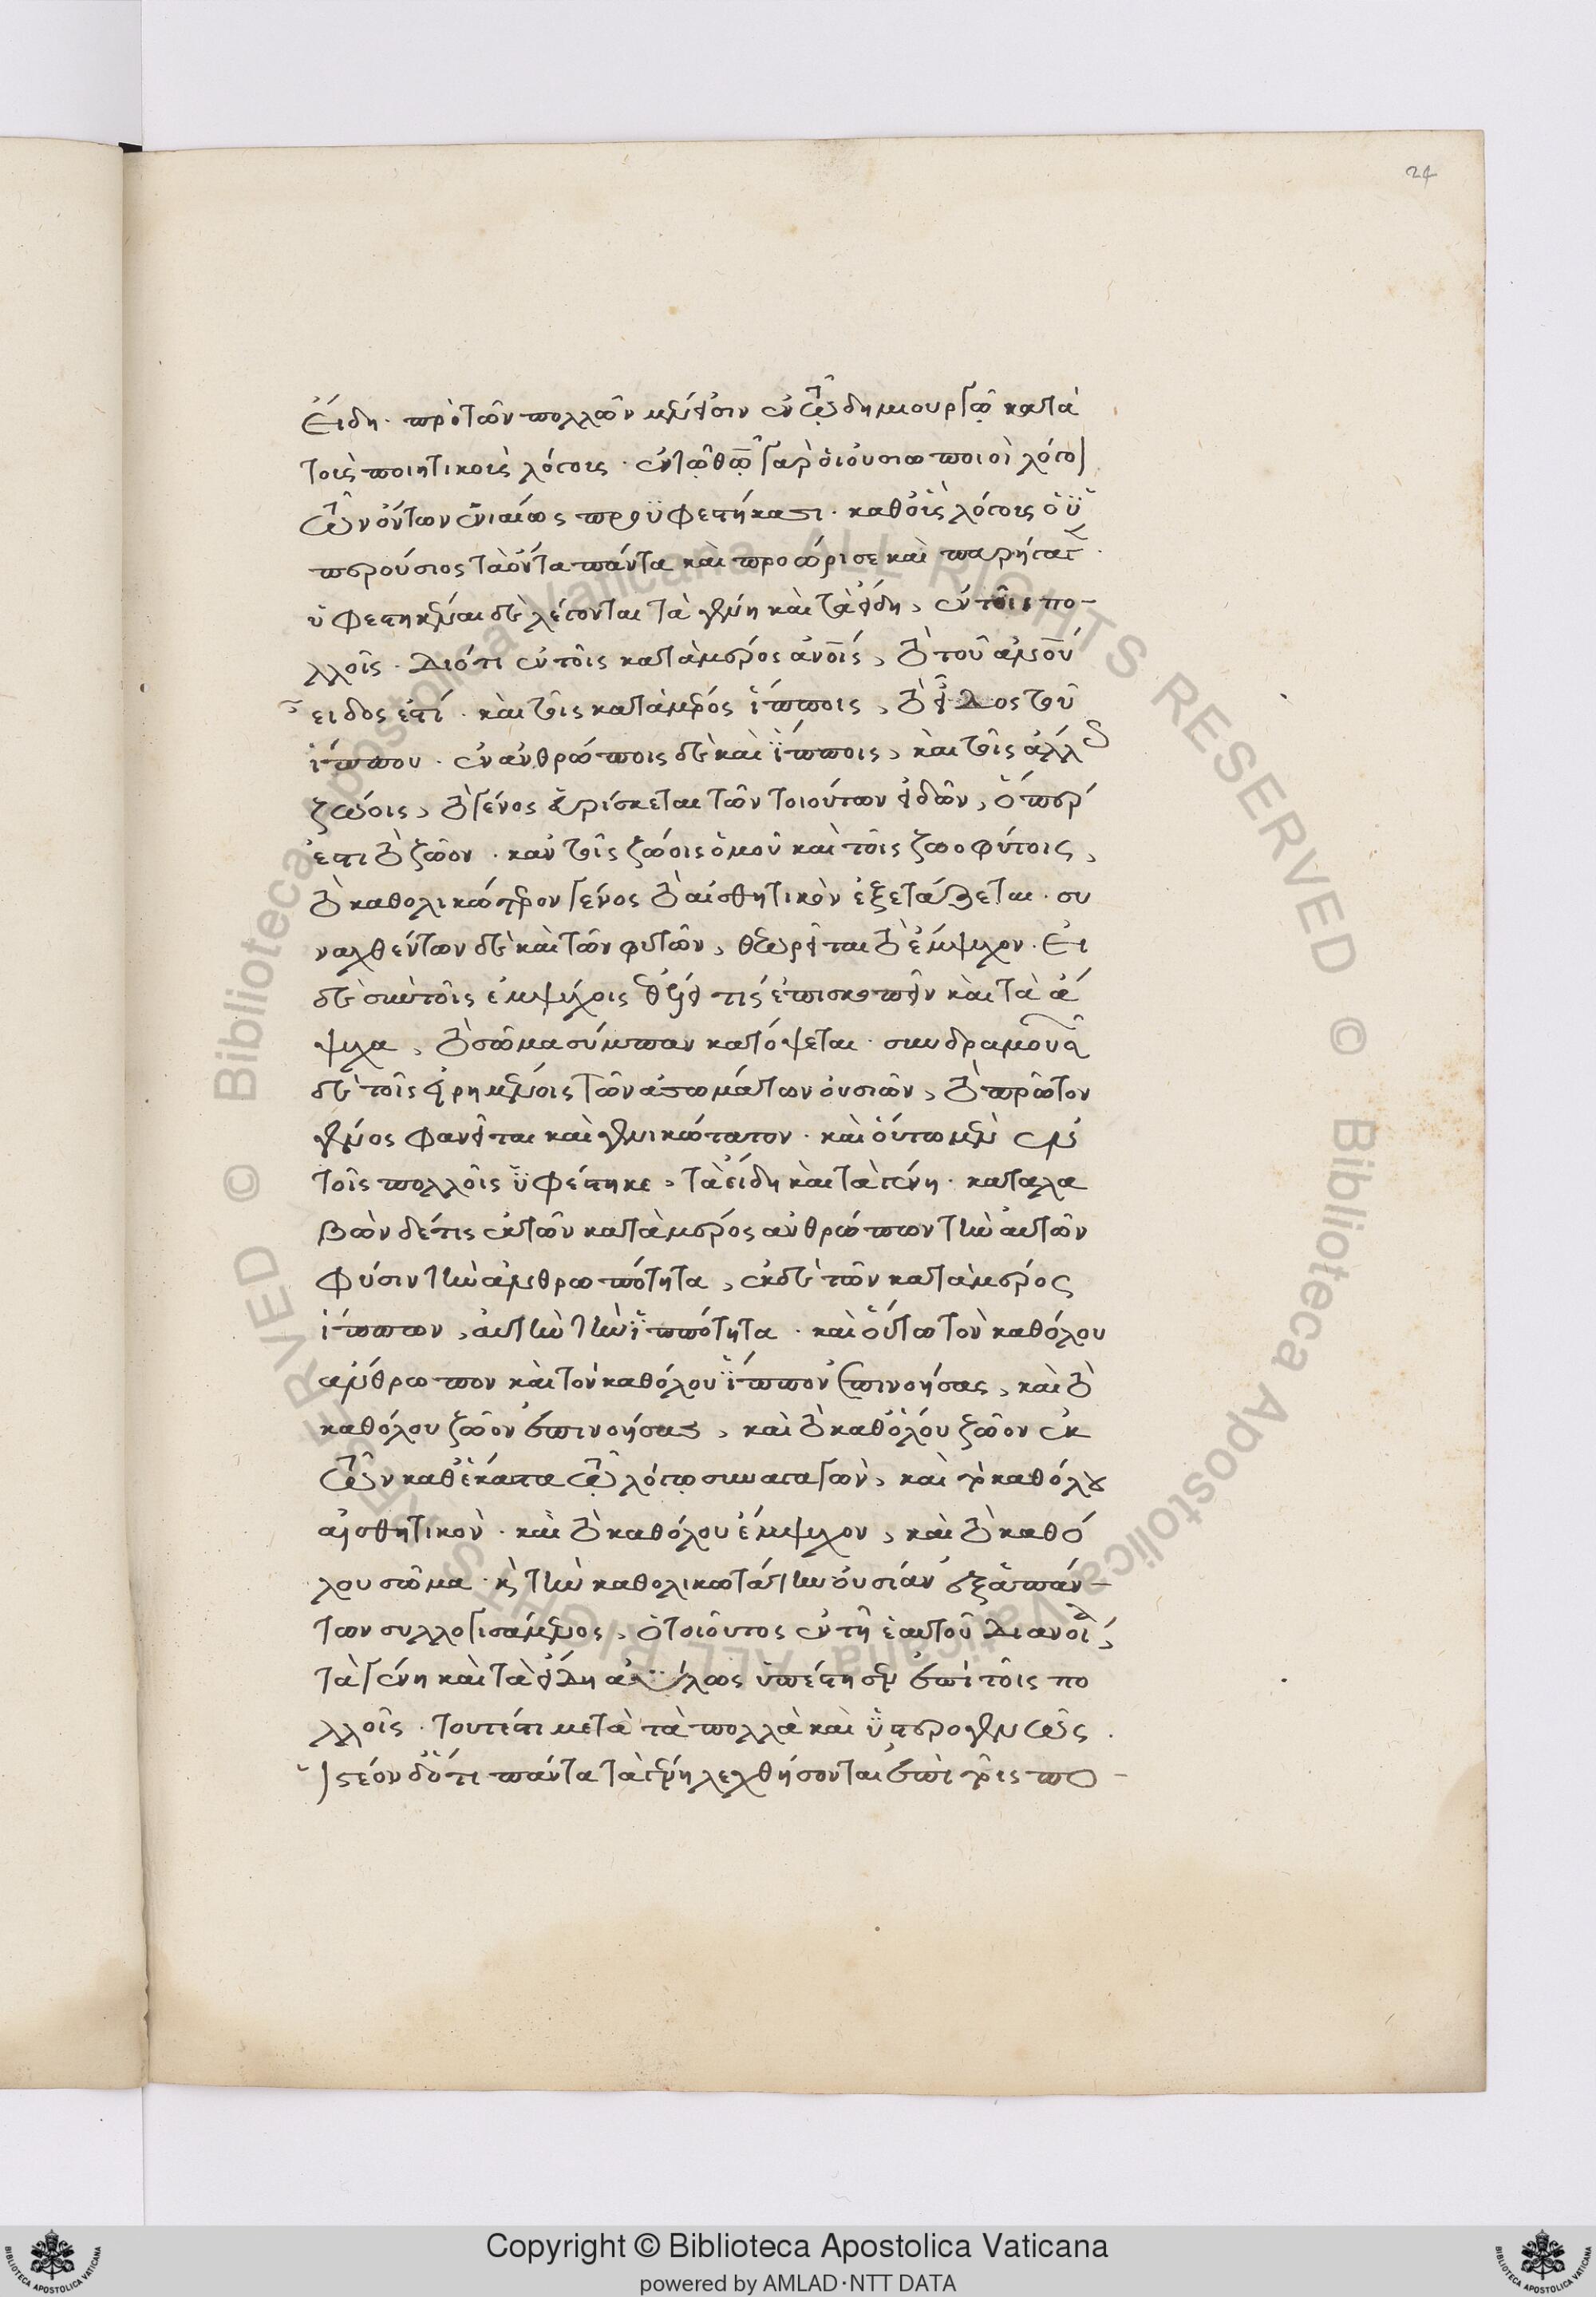 24
εἴδη. πρὸ τῶν πολλῶν μέν εἰσιν ἐν τῷ δημιουργῷ κατὰ
τοὺς ποιητικοὺς λόγους. ἐν τῷ θῷ γὰρ οἱ οὐσιωποιοὶ λόγοι
τῶν ὄντων ἑνιαίως προϋφεστήκασι. καθ' οὓς λόγους ὁ ὑ
περούσιος τὰ ὄντα πάντα καὶ προώρισε καὶ παρήγαγε.
ὑφεστηκέναι δὲ λέγονται τὰ γένη καὶ τὰ εἴδη, ἐν τοῖς πο-
λλοῖς. διότι ἐν τοῖς κατὰ μέρος ἀνοις, τὸ τοῦ ἀνου
εἶδος ἐστί. καὶ τοῖς κατὰ μέρος ἵπποις, τὸ εἶδος τοῦ
ἵππου. ἐν ἀνθρώποις δὲ καὶ ἵπποις, καὶ τοῖς ἄλλοις
ζώοις, τὸ γένος εὑρίσκεται τῶν τοιούτων εἰδῶν, ὅπερ
ἐστι τὸ ζῶον. κἀν τοῖς ζώοις ὁμοῦ καὶ τοῖς ζωοφύτοις,
τὸ καθολικώτερον γένος τὸ αἰσθητικὸν ἐξετάζεται. συ
ναχθέντων δὲ καὶ τῶν φυτῶν, θεωρεῖται τὸ ἔμψυχον. εἰ
δὲ σὺν τοῖς ἐμψύχοις θέλει τις ἐπισκοπεῖν καὶ τὰ ἄ
ψυχα, τὸ σῶμα σύμπαν κατόψεται. συνδραμουσῶν
δὲ τοῖς εἰρημένοις τῶν ἀσωμάτων οὐσιῶν, τὸ πρῶτον
γένος φανεῖται καὶ γενικώτατον. καὶ οὕτω μὲν ἐν
τοῖς πολλοῖς ὑφέστηκε, τὰ εἴδη καὶ τὰ γένη. καταλα
βὼν δέ τις ἐκ τῶν κατὰ μέρος ἀνθρώπων τὴν αὐτῶν
φύσιν τὴν ἀνθρωπότητα, ἐκ δὲ τῶν κατὰ μέρος
ἵππων, αὐτὴν τὴν ἱππότητα. καὶ οὕτω τὸν καθόλου
ἄνθρωπον καὶ τὸν καθόλου ἵππον ἐπινοήσας, καὶ τὸ
καθόλου ζῶον ἐπινοήσας, καὶ τὸ καθόλου ζῶον ἐκ
τῶν καθέκαστα τῷ λόγῳ συναγαγὼν, καὶ τὸ καθόλου
αἰσθητικὸν. καὶ τὸ καθόλου ἔμψυχον, καὶ τὸ καθό
λου σῶμα. κ τὴν καθολικωτάτην οὐσίαν ἐξ ἁπάν-
των συλλογισάμενος, ὁ τοιοῦτος ἐν τῇ ἑαυτοῦ διανοίᾳ,
τὰ γένη καὶ τὰ εἴδη ἀΰλως ὑπέστησεν ἐπὶ τοῖς πο
λλοῖς. τουτέστι μετὰ τὰ πολλὰ καὶ ὑστερογενῶς.
ἰστέον δ' ὅτι πάντα τὰ γένη λεχθήσονται ἐπὶ τοῖς πο-
Copyright © Biblioteca Apostolica Vaticana
powered by AMLAD·NTT DATA
© Biblioteca Apostolica Vaticana ALL RIGHTS RESERVED © Biblioteca Apostolica Vaticana ALL RIGHTS RESERVED
BIBLIOTECA APOSTOLICA VATICANA
BIBLIOTECA APOSTOLICA VATICANA